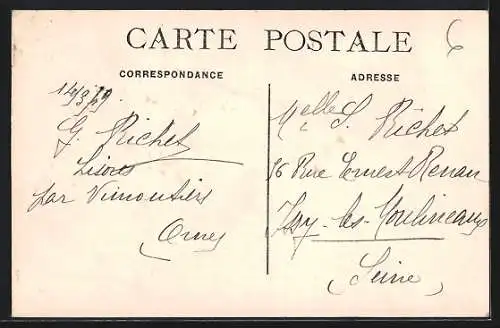 CARTE POSTALE
CORRESPONDANCE
G. Richet
Lisores
par Vimoutiers
(Orne)
ADRESSE
Melle S. Richet
16 Rue Ernest Renan
Issy-les-Moulineaux
(Seine)